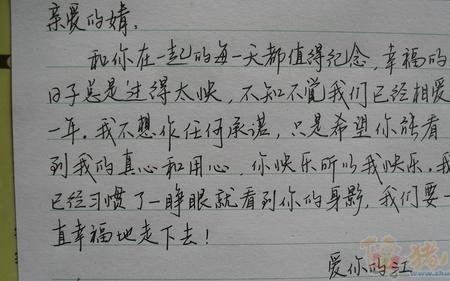 亲爱的婧,
和你在一起的每一天都值得纪念,幸福的
日子总是过得太快,不知不觉我们已经相爱
一年.我不想作任何承诺,只是希望你能看
到我的真心和用心.你快乐所以我快乐.我
已经习惯了一睁眼就看到你的身影,我们要一
直幸福地走下去!
爱你的江